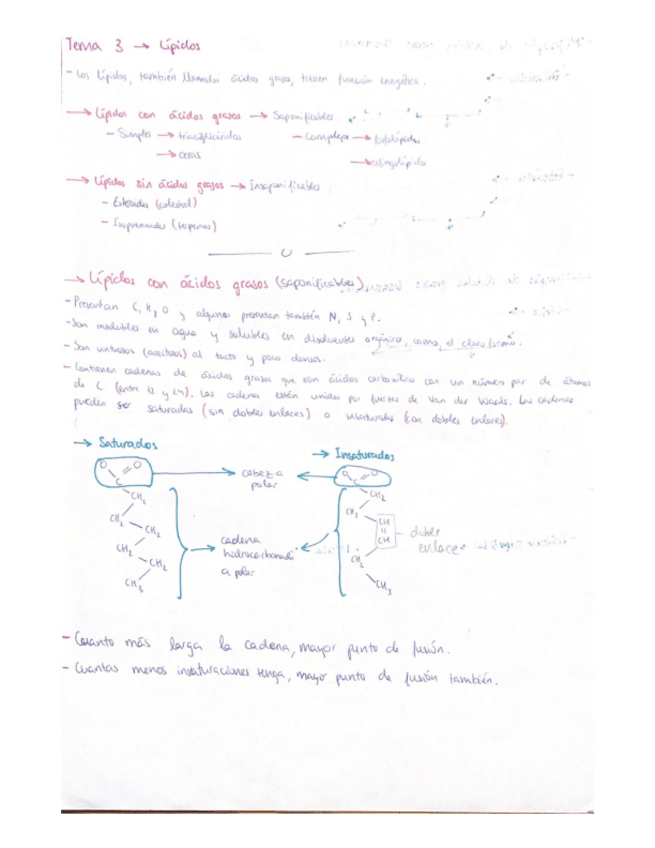 Tema 3 → Lípidos
- Los lípidos, también llamados ácidos grasos, tienen función energética.
→ Lípidos con ácidos grasos → Saponificables
- Simples → triacilglicéridos - Complejos → fosfolípidos
→ ceras → esfingolípidos
→ Lípidos sin ácidos grasos → Insaponificables
- Esteroides (colesterol)
- Isoprenoides (terpenos)
→ Lípidos con ácidos grasos (saponificables)
- Presentan C, H, O y algunos presentan también N, S y P.
- Son insolubles en agua y solubles en disolventes orgánicos, como, el cloroformo.
- Son untuosos (aceitosos) al tacto y poco densos.
- Contienen cadenas de ácidos grasos que son ácidos carboxílicos con un número par de átomos
de C (entre 12 y 24). Las cadenas están unidas por fuerzas de Van der Waals. Las cadenas
pueden ser saturadas (sin dobles enlaces) o insaturadas (con dobles enlaces).
→ Saturados → Insaturados
O O C cabeza polar O O C
CH2 CH2
CH2 CH2 CH
CH2 cadena CH doble
CH2 hidrocarbonada CH2 enlace
CH2 apolar
CH3 CH3
- Cuanto más larga la cadena, mayor punto de fusión.
- Cuantas menos insaturaciones tenga, mayor punto de fusión también.